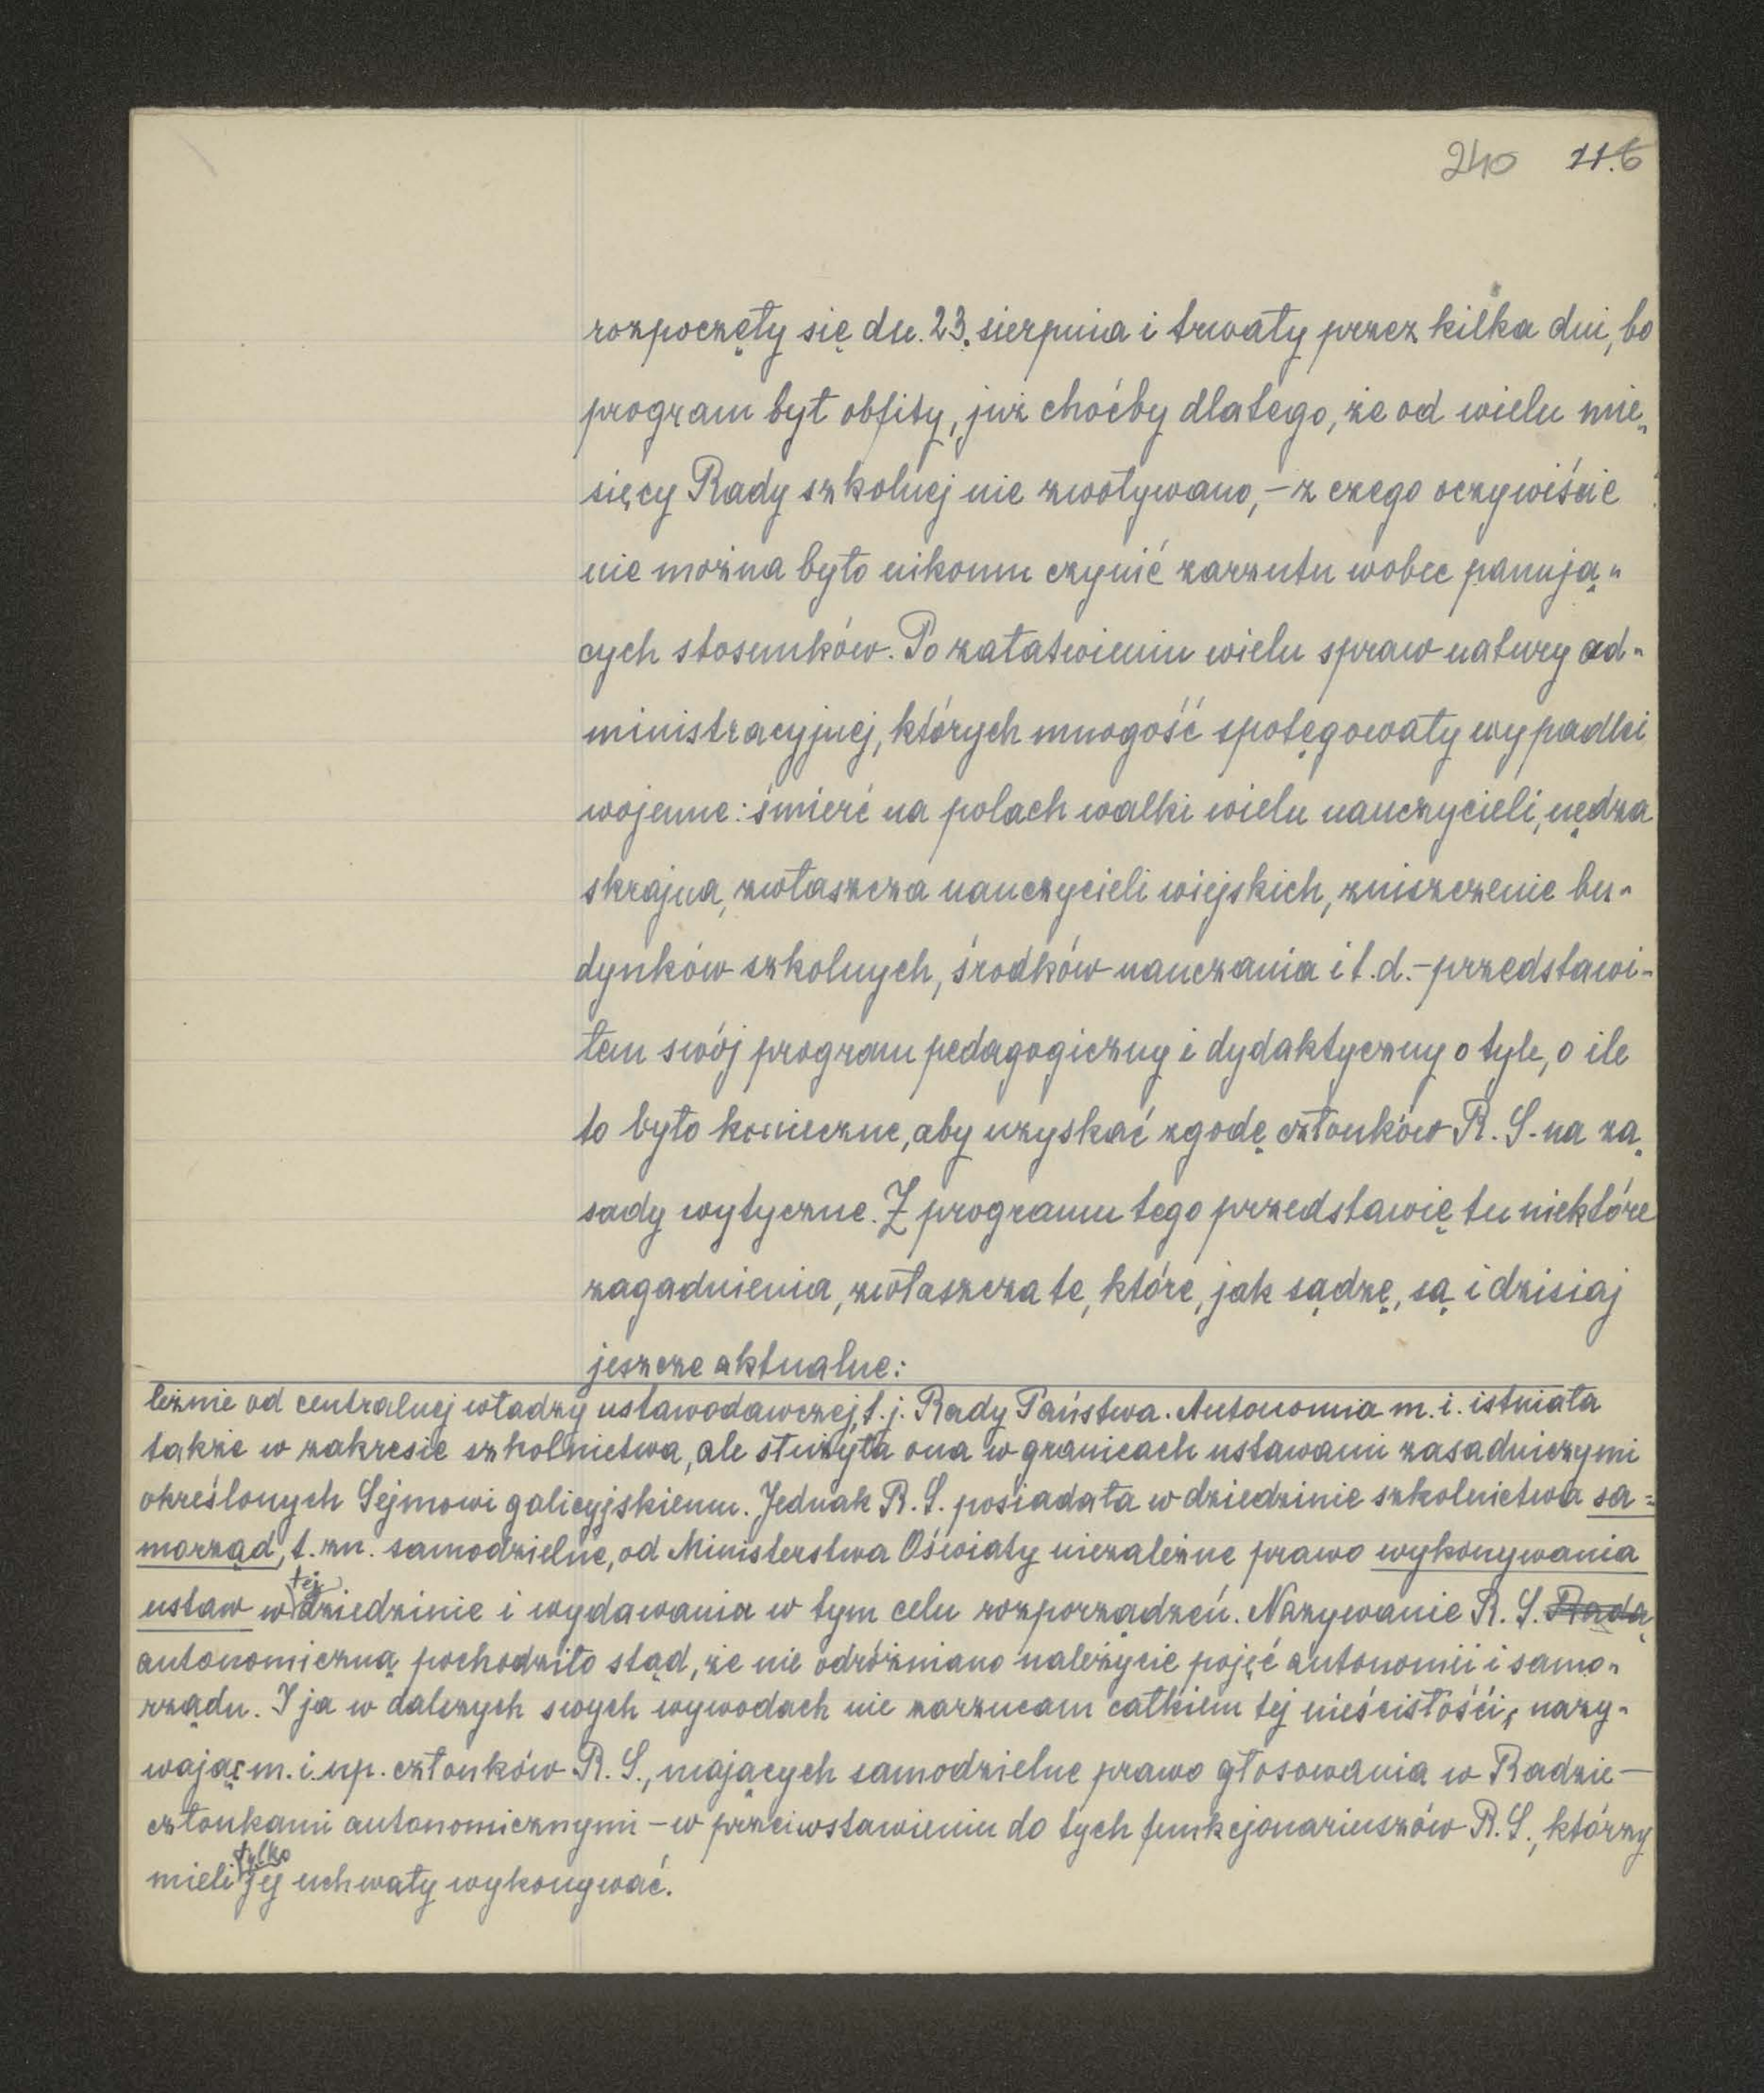 240 11.6
rozpoczęły się dn. 23. sierpnia i trwały przez kilka dni, bo
program był obfity, już choćby dlatego, że od wielu mie„
sięcy Rady szkolnej nie zwoływano, – z czego oczywiście
nie można było nikomu czynić zarzutu wobec panują„
cych stosunków. Po załatwieniu wielu spraw natury ad„
ministracyjnej, których mnogość spotęgowały wypadki
wojenne: śmierć na polach walki wielu nauczycieli, nędza
skrajna, zwłaszcza nauczycieli wiejskich, zniszczenie bu„
dynków szkolnych, środków nauczania i t.d. – przedstawi„
łem swój program pedagogiczny i dydaktyczny o tyle, o ile
to było konieczne, aby uzyskać zgodę członków R. S. na za„
sady wytyczne. Z programu tego przedstawię tu niektóre
zagadnienia, zwłaszcza te, które, jak sądzę, są i dzisiaj
jeszcze aktualne:
leżnie od centralnej władzy ustawodawczej, t. j. Rady Państwa. Autonomia m. i. istniała
także w zakresie szkolnictwa, ale służyła ona w granicach ustawami zasadniczymi
określonych Sejmowi galicyjskiemu. Jednak R. S. posiadała w dziedzinie szkolnictwa sa=
morząd, t. zn. samodzielne, od Ministerstwa Oświaty niezależne prawo wykonywania
ustaw w tej dziedzinie i wydawania w tym celu rozporządzeń. Nazywanie R. S. Radą
autonomiczną pochodziło stąd, że nie odróżniano należycie pojęć autonomii i samo„
rządu. I ja w dalszych swych wywodach nie zarzucam całkiem tej nieścisłości, nazy„
wając m. i. np. członków R. S., mających samodzielne prawo głosowania w Radzie –
członkami autonomicznymi – w przeciwstawieniu do tych funkcjonariuszów R. S., którzy
mieli tylko jej uchwały wykonywać.